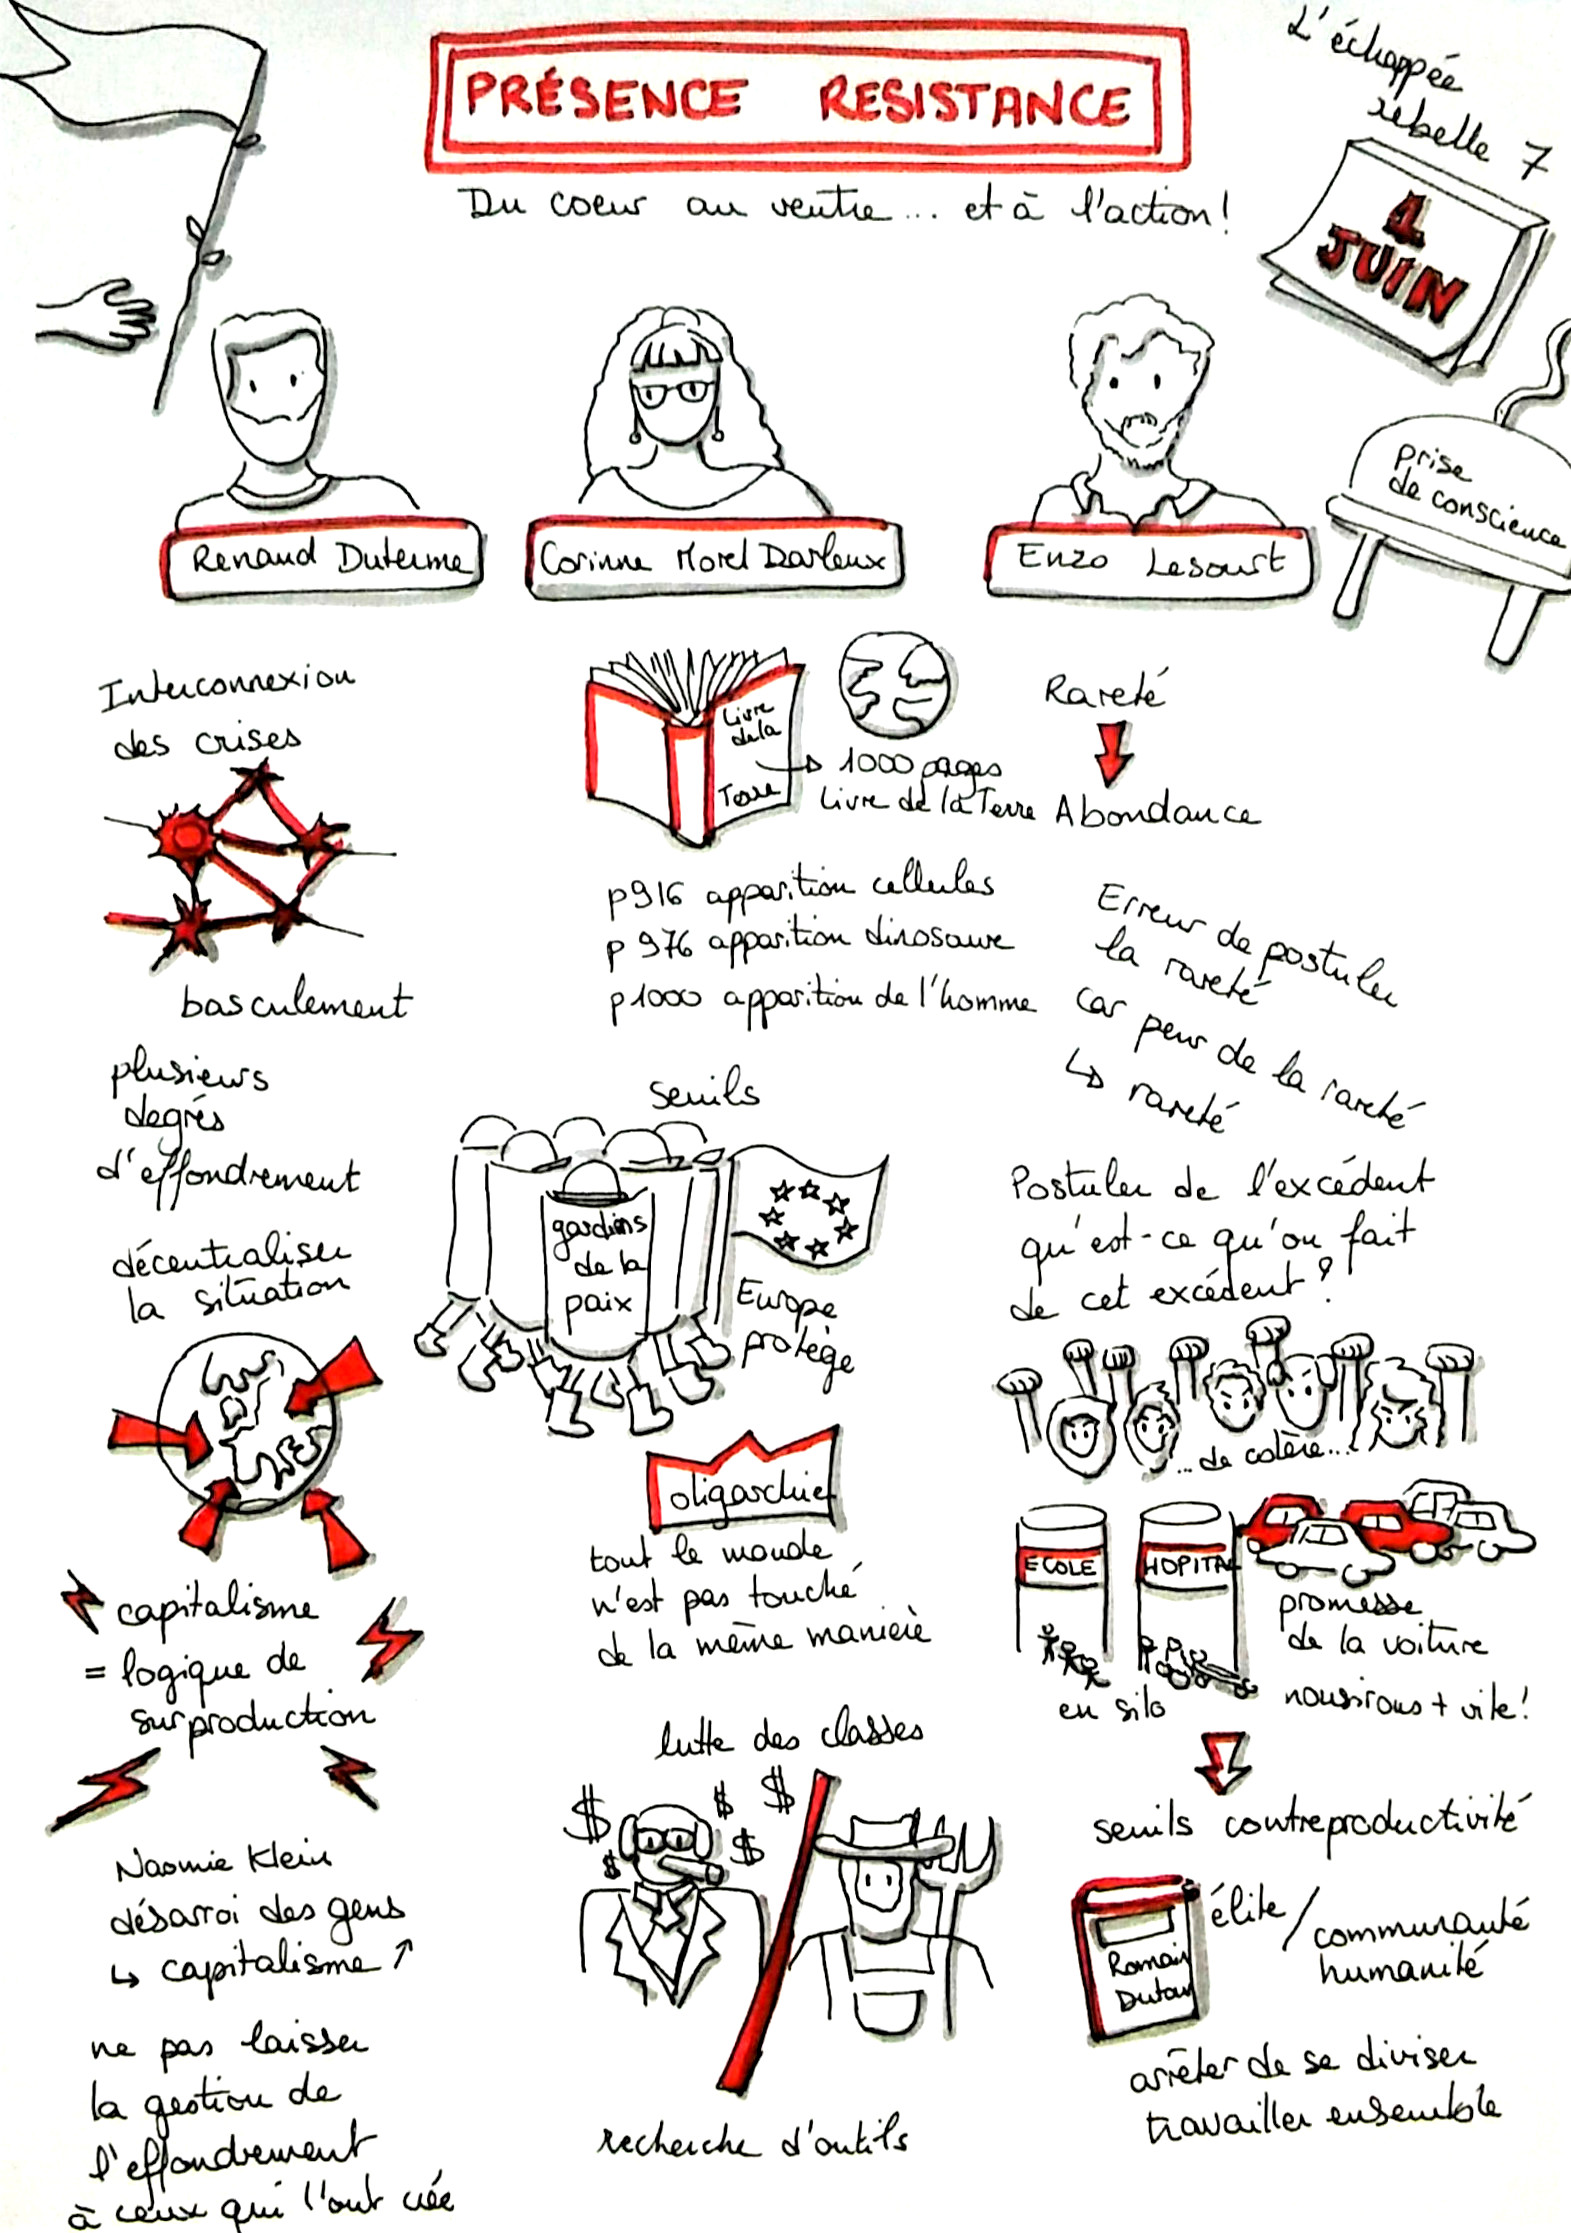 PRÉSENCE RESISTANCE
Du coeur au ventre... et à l'action!
L'échappée
rebelle 7
1
JUIN
prise
de conscience
Renaud Duterme
Corinne Morel Darleux
Enzo Lesourt
Interconnexion
des crises
basculement
plusieurs
degrés
d'effondrement
décentraliser
la situation
capitalisme
= logique de
surproduction
Naomie Klein
désarroi des gens
↳ capitalisme ↗
ne pas laisser
la gestion de
l'effondrement
à ceux qui l'ont créé
Livre
de la
Terre
→ 1000 pages
Livre de la Terre
p916 apparition cellules
p 976 apparition dinosaure
p1000 apparition de l'homme
seuils
gardins
de la
paix
Europe
protège
oligarchie
tout le monde
n'est pas touché
de la même manière
lutte des classes
$ $ $ $ $
recherche d'outils
Rareté
Abondance
Erreur de postuler
la rareté
car peur de la rareté
↳ rareté
Postuler de l'excédent
qu'est-ce qu'on fait
de cet excédent?
...de colère...
ECOLE
HOPITAL
en silo
promesse
de la voiture
nourrirons + vite!
seuils contreproductivité
Romain
Dutour
élite/
communauté
humanité
arrêter de se diviser
travailler ensemble